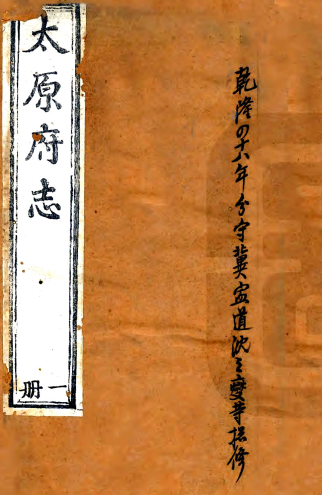 乾隆四十八年分守冀寧道沈之燮等接修
太原府志
一冊